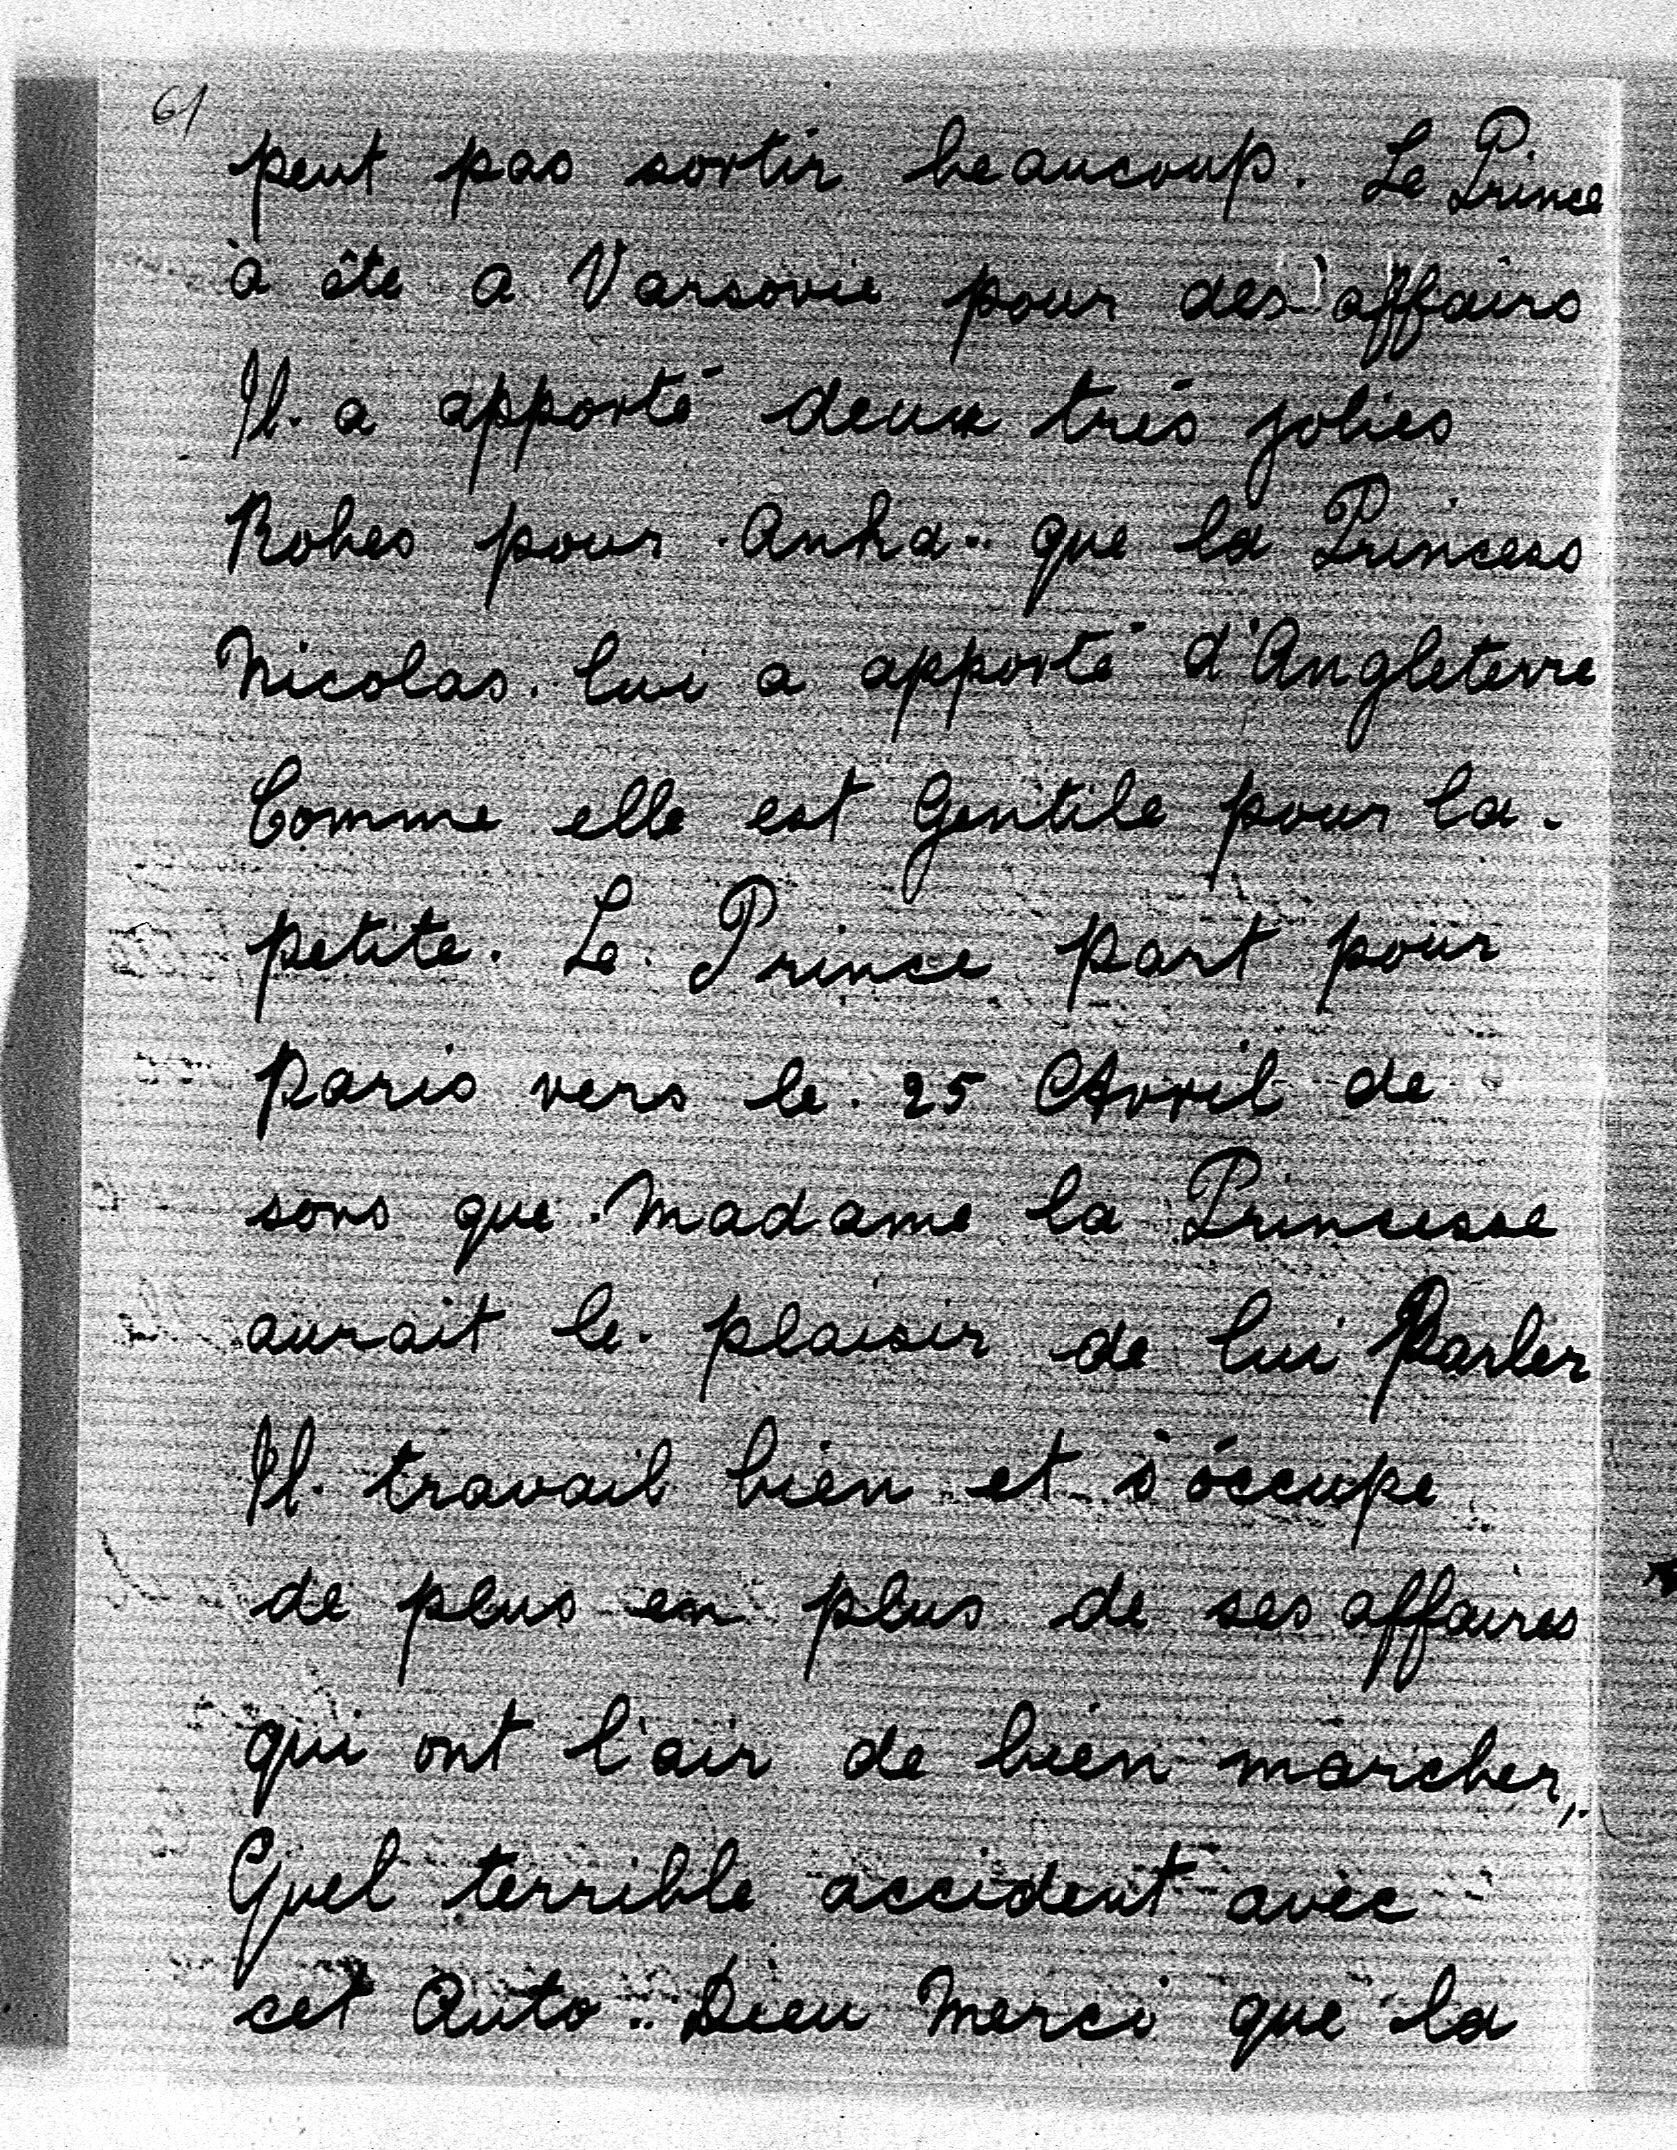 61
peut pas sortir beaucoup. Le Prince
à ête a Varsovie pour des affairs
Il. a apporté deux trés jolies
Robes pour Anka.. que la Princess
Nicolas. lui a apporté d'Angleterre
Comme elle est Gentile pour la.
petite. Le Prince part pour
Paris vers le. 25 Avril de
sors que Madame la Princesse
aurait le. plaisir de lui Parler
Il. travail bien et s'óccupe
de plus en plus de ses affaires
qui ont l'air de bien marcher,.
Quel terrible accident avec
cet Auto.. Dieu Merci que la